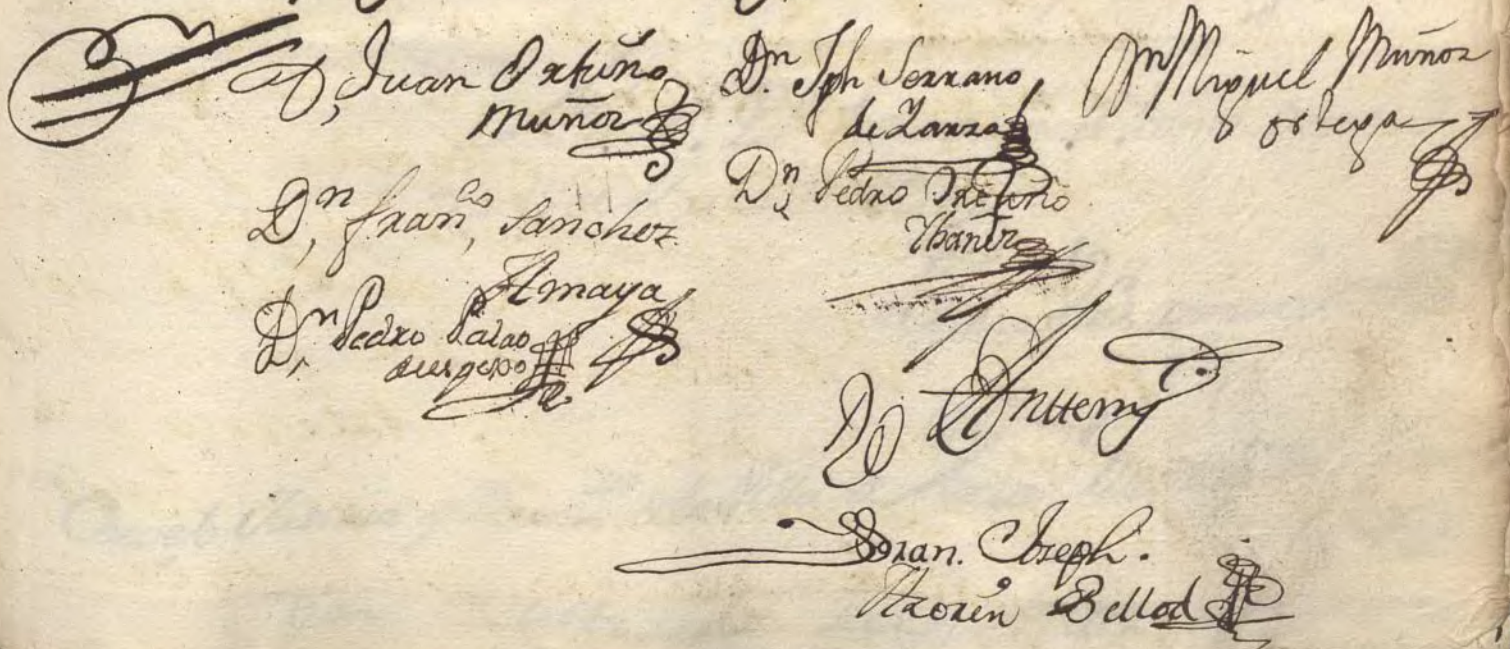 D, Juan Ortuño
Muñoz
D.n Jph Serrano
de Zarza
Dn Miguel Muñoz
ortega
D,n fran,co Sanchez
Amaya
Dn Pedro Ortuño
Ybañez
D,n Pedro Palao
Anttemy
Fran. Joseph.
Azorin Bellod